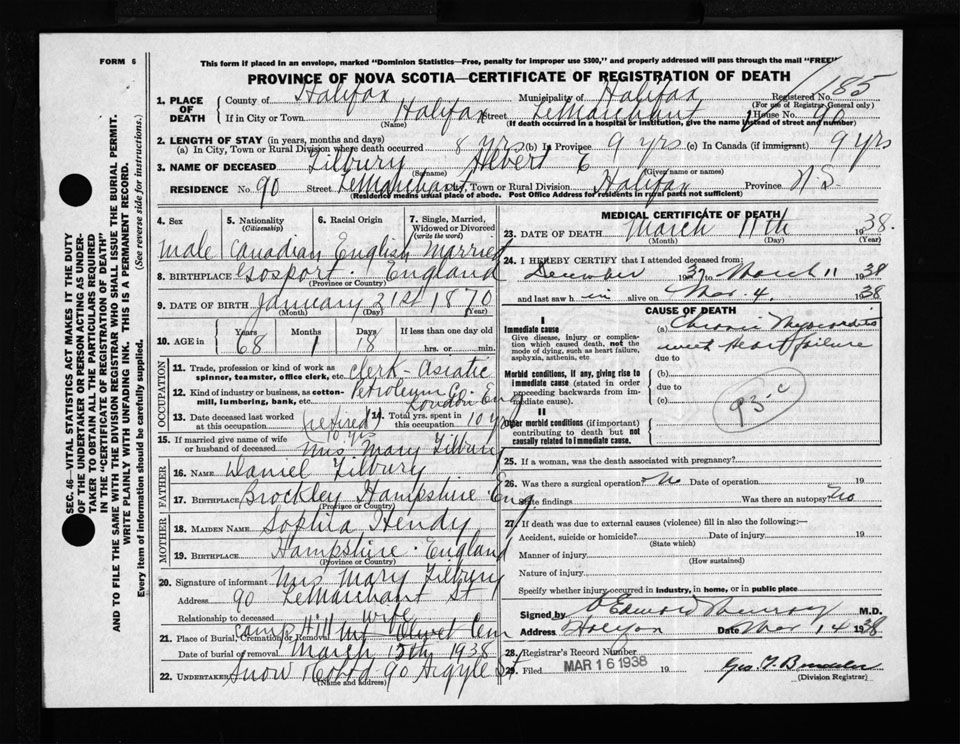 FORM 6
This form if placed in an envelope, marked "Dominion Statistics—Free, penalty for improper use $300," and properly addressed will pass through the mail "FREE"
PROVINCE OF NOVA SCOTIA—CERTIFICATE OF REGISTRATION OF DEATH
185
1. PLACE OF DEATH
County of Halifax Municipality of Halifax Registered No.
(For use of Registrar General only)
If in City or Town Halifax Street LeMarchant House No. 90
(Name) (If death occurred in a hospital or institution, give the name instead of street and number)
2. LENGTH OF STAY (in years, months and days)
(a) In City, Town or Rural Division where death occurred 8 yrs (b) In Province 9 yrs (c) In Canada (if immigrant) 9 yrs
3. NAME OF DECEASED Tilbury Albert E
(Surname) (Given name or names)
RESIDENCE No. 90 Street LeMarchant City, Town or Rural Division Halifax Province N.S
(Residence means usual place of abode. Post Office Address for residents in rural parts not sufficient)
4. Sex
5. Nationality (Citizenship)
6. Racial Origin
7. Single, Married, Widowed or Divorced (write the word)
Male Canadian English Married
8. BIRTHPLACE Gosport. England
(Province or Country)
9. DATE OF BIRTH January 21st 1870
(Month) (Day) (Year)
10. AGE in Years Months Days If less than one day old
68 1 18 hrs. or min.
OCCUPATION
11. Trade, profession or kind of work as spinner, teamster, office clerk, etc. Clerk - Asiatic
12. Kind of industry or business, as cotton-mill, lumbering, bank, etc. Petroleum Co. London Eng
13. Date deceased last worked at this occupation (retired) 10 yrs
14. Total yrs. spent in this occupation 10 yrs
15. If married give name of wife or husband of deceased Mrs Mary Tilbury
FATHER
16. NAME Daniel Tilbury
17. BIRTHPLACE Brockley Hampshire Eng
(Province or Country)
MOTHER
18. MAIDEN NAME Sophia Hendy
19. BIRTHPLACE Hampshire. England
(Province or Country)
20. Signature of informant Mrs Mary Tilbury
Address 90 LeMarchant St
Relationship to deceased Wife
21. Place of Burial, Cremation or Removal Camp Hill Mt Olivet Cem
Date of burial or removal March 15th 1938
22. UNDERTAKER Snow & Co Ltd 90 Argyle St
(Name and address)
MEDICAL CERTIFICATE OF DEATH
23. DATE OF DEATH March 11th 1938.
(Month) (Day) (Year)
24. I HEREBY CERTIFY that I attended deceased from:
December 1937 to March 11 1938
and last saw him alive on Mar 4. 1938
CAUSE OF DEATH
I
Immediate cause
Give disease, injury or complication which caused death, not the mode of dying, such as heart failure, asphyxia, asthenia, etc
(a) Chronic Myocarditis with heart failure
due to
Morbid conditions, if any, giving rise to immediate cause (stated in order proceeding backwards from immediate cause).
(b)
due to
(c)
93 c
II
Other morbid conditions (if important) contributing to death but not causally related to immediate cause.
25. If a woman, was the death associated with pregnancy?
26. Was there a surgical operation? No Date of operation 19
State findings Was there an autopsy? No
27. If death was due to external causes (violence) fill in also the following:—
Accident, suicide or homicide? Date of injury 19
(State which)
Manner of injury
(How sustained)
Nature of injury
Specify whether injury occurred in industry, in home, or in public place
Signed by Edward Murray M.D.
Address Date Mar 14 1938
28. Registrar's Record Number
29. Filed MAR 16 1938 19
(Division Registrar)
SEC. 46—VITAL STATISTICS ACT MAKES IT THE DUTY
OF THE UNDERTAKER OR PERSON ACTING AS UNDER-
TAKER TO OBTAIN ALL THE PARTICULARS REQUIRED
IN THE "CERTIFICATE OF REGISTRATION OF DEATH"
AND TO FILE THE SAME WITH THE DIVISION REGISTRAR WHO SHALL ISSUE THE BURIAL PERMIT.
WRITE PLAINLY WITH UNFADING INK. THIS IS A PERMANENT RECORD.
Every item of information should be carefully supplied. (See reverse side for instructions.)